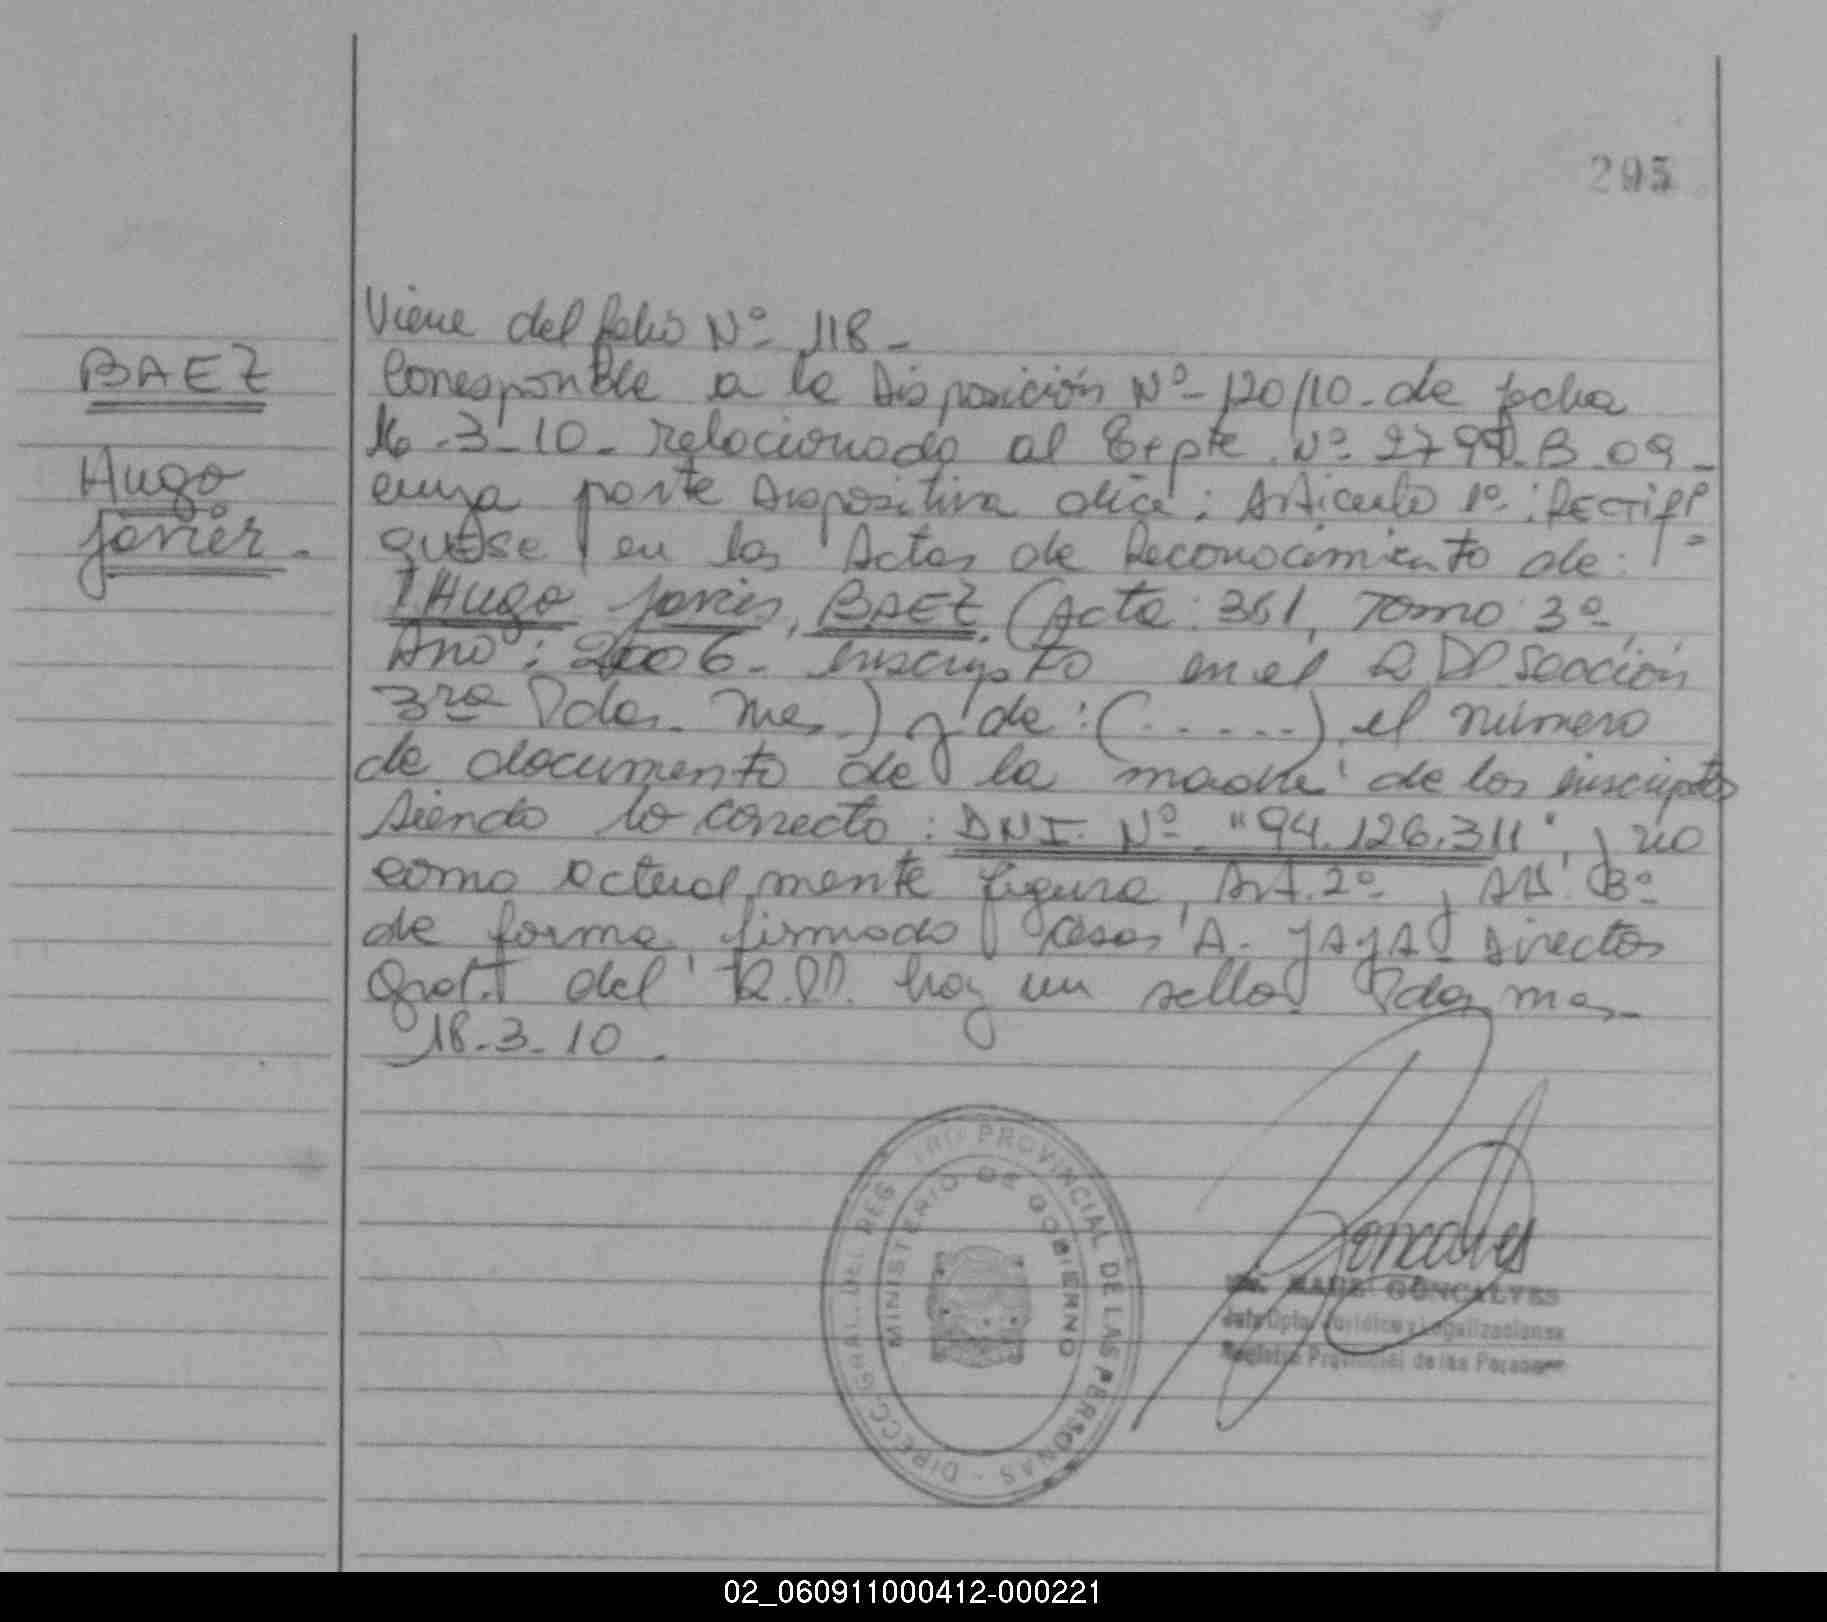 295
Viene del folio Nº 118 -
BAEZ
Corresponde a la Disposición Nº 120/10 - de fecha
16-3-10 - relacionado al Expte. Nº B-09 -
Hugo
cuya parte Dispositiva dice: Artículo 1º: RECTIFI
Javier.
QUESE en las Actas de Reconocimiento de:
Hugo Javier, BAEZ, (Acta: 351, Tomo 3º,
Año: 2006 - inscripto en el R.P.P. Sección
3ra Pdas. Mes.) y de: (.....) el número
de documento de la madre de los inscriptos
siendo lo correcto: DNI. Nº "94.126.311", y no
como actualmente figura, Art. 2º y Art. 3º
de forma, firmado Cesar A. YAYA Director
Gral. del R.P.P. hay un sello. Pdas, mes -
18-3-10.
DIRECC. GRAL. DEL REGISTRO PROVINCIAL DE LAS PERSONAS -
MINISTERIO DE GOBIERNO
Goncalves
GONCALVES
Jefe Dpto. Jurídico y Legalizaciones
Registro Provincial de las Personas
02_060911000412-000221